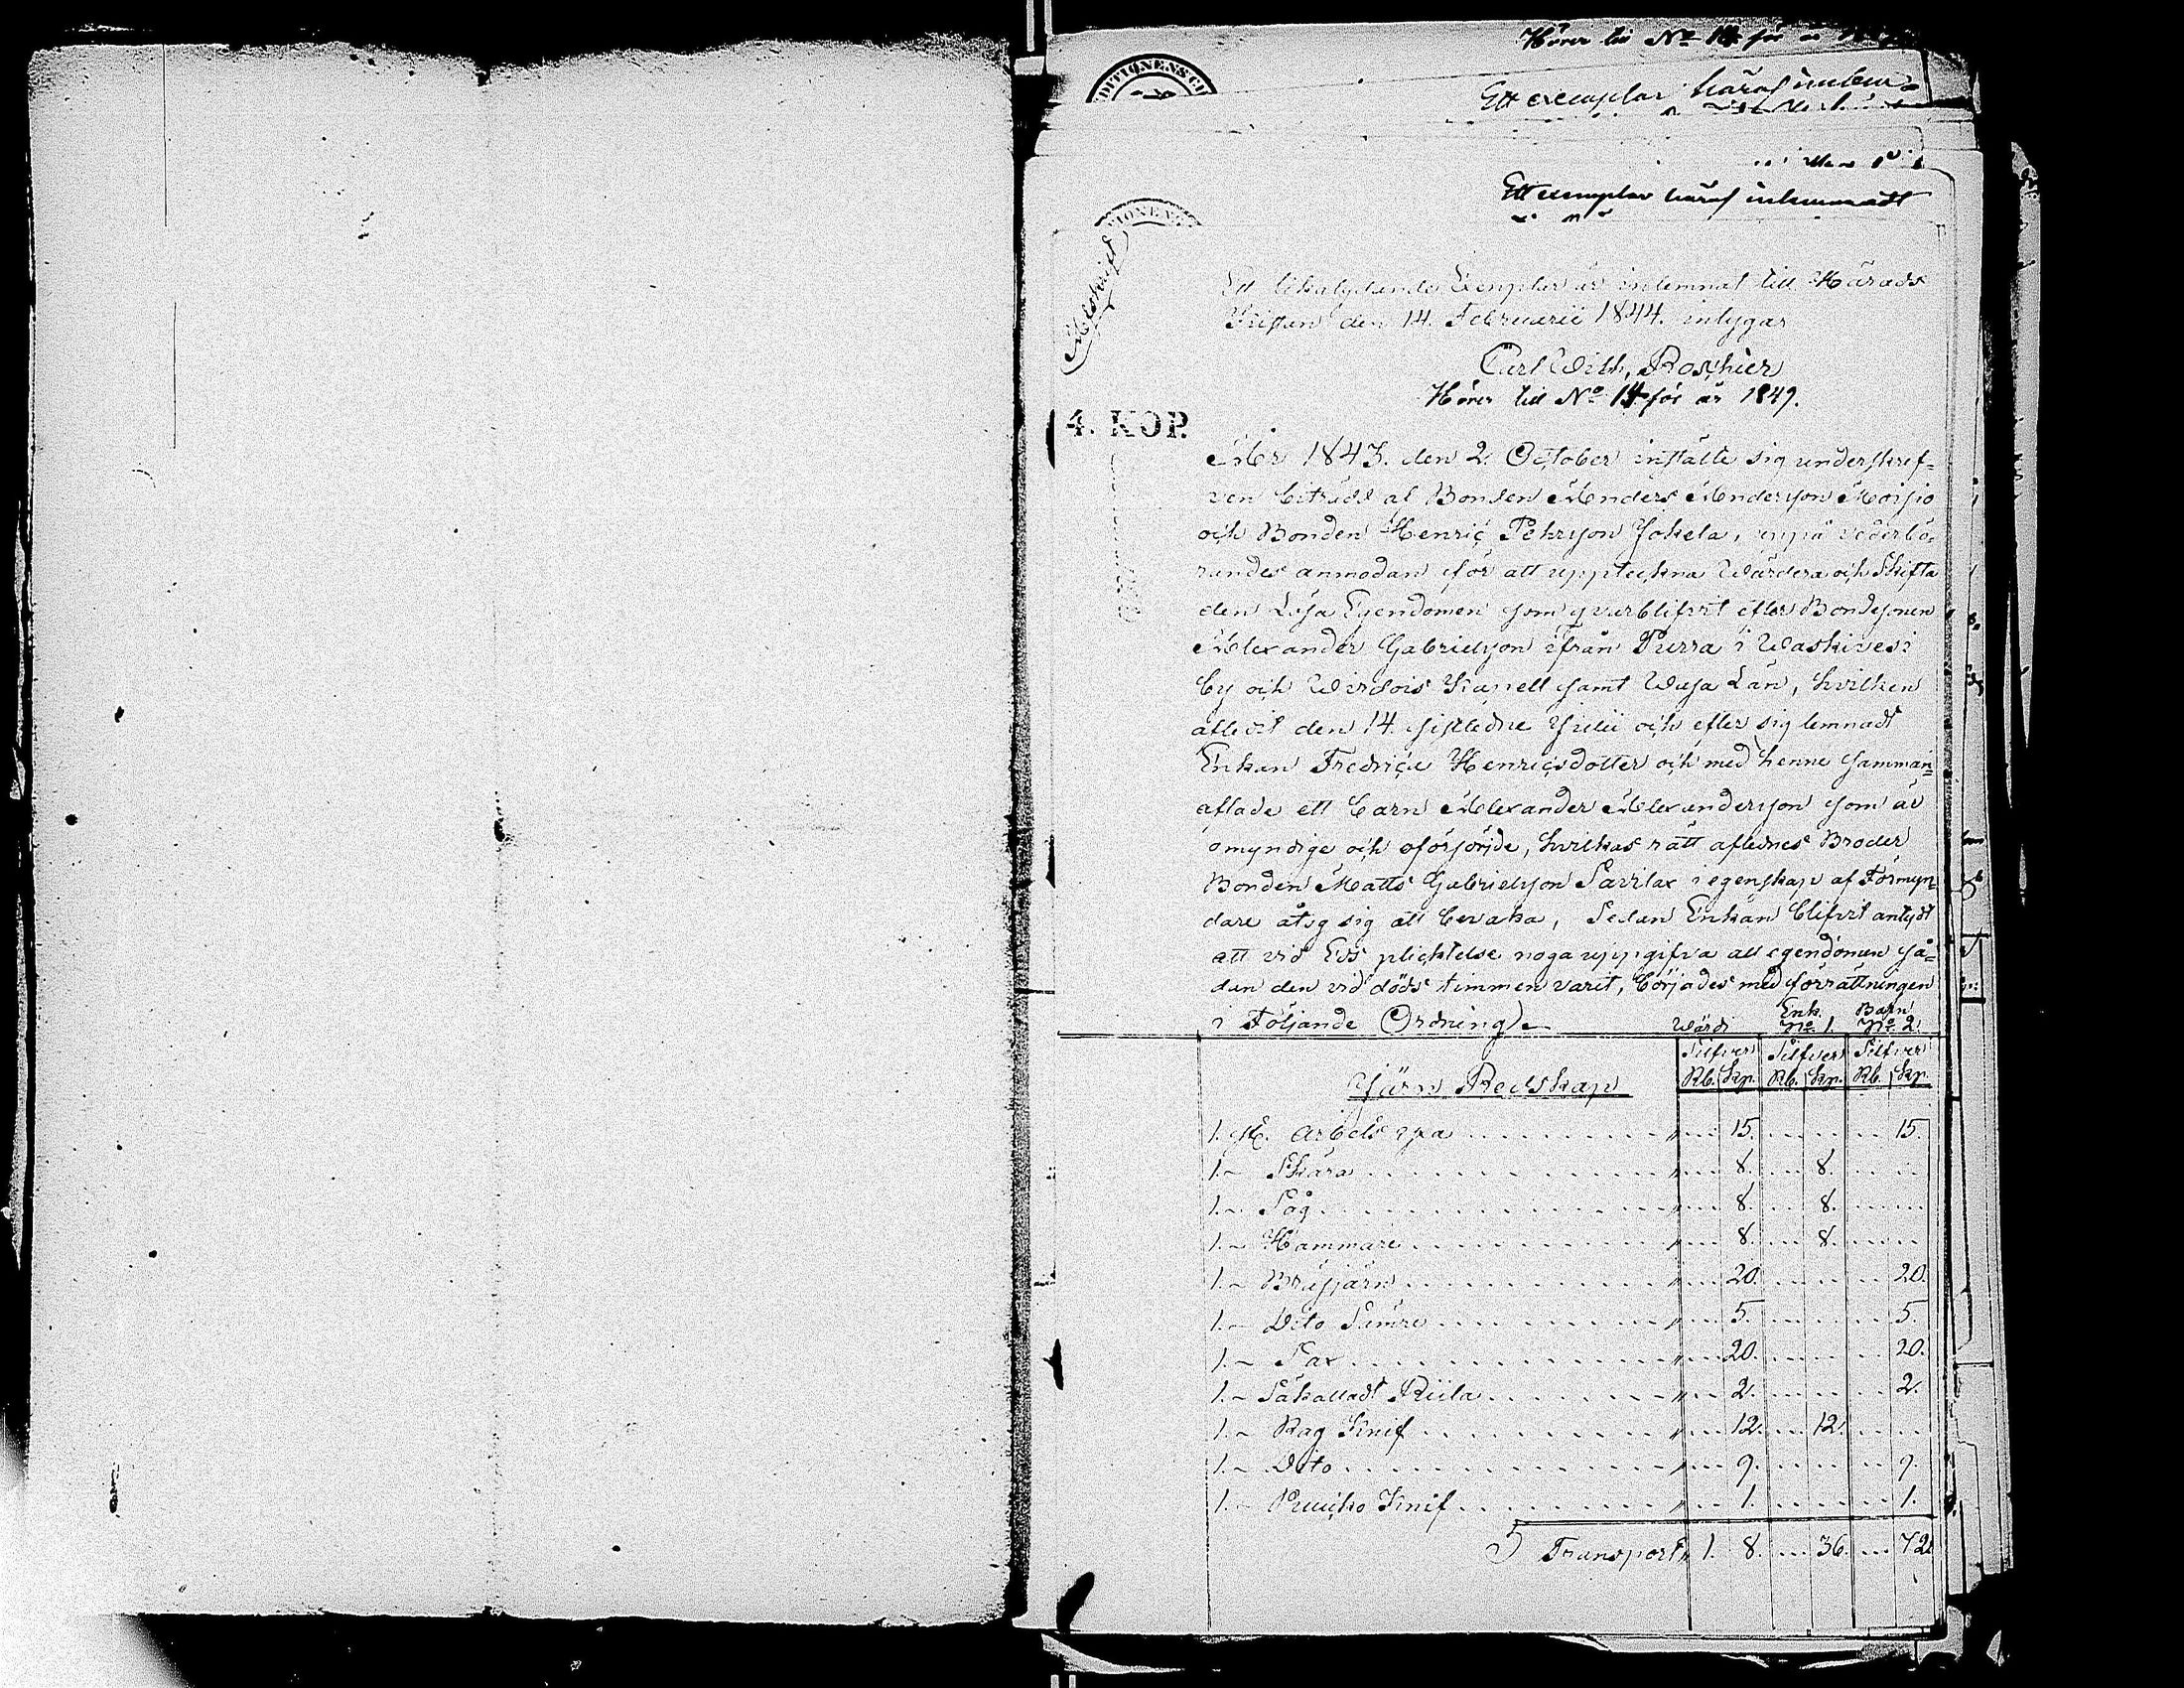 Hörer til No 14 för år
Ett exemplar häraf inlem
Ett exemplar häraf inlemnadt
Afskrift
Ett likalydande Exemplar är inlemnat till Härads
Kistan den 14. Februarii 1844. intygar
Carl Wilh. Roschier
Hörer till No 14 för år 1849.
4. KOP.
År 1843. den 2. October instälte sig underskref=
ven biträdd af Bonden Anders Andersson Moisio
och Bonden Henric Pehrsson Jokela, uppå vederbö=
randes anmodan för att uppteckna Wärdera och Skifta
den Lösa Egendomen som qvarblifvit efter Bondesonen
Alexander Gabrielsson ifrån Purra i Waskivesi
by och Wirdois Kapell samt Wasa Län, hvilken
aflevit den 14. sistledne Julii och efter sig lemnadt
Enkan Fredrica Henricsdotter och med henne samman=
aflade ett barn Alexander Alexandersson som är
omyndige och oförsörjde, hvilkas rätt aflednes Broder
Bonden Matts Gabrielsson Savilax i egenskap af Förmyn=
dare åtog sig att bevaka, Sedan Enkan blifvit antydt
att vid Eds plichtelse noga uppgifva all egendomen så=
dan den vid döds timmen varit, börjades med förrättningen
i Följande Ordning
Wärdi Enk. No 1. Barn No 2.
Silfver Silfver Silfver
Järn Redskap Rb. Kp. Rb. Kp. Rb. Kp.
1. St. Arbets yxa 15. 15.
1. ~ Skära 8. 8.
1. ~ Såg 8. 8.
1. ~ Hammare 8. 8.
1. ~ Bräsjärn 20. 20.
1. ~ Dito Sämre 5. 5.
1. ~ Sax 20. 20.
1. ~ Såkalladt Riila 2. 2.
1. ~ Rag Knif 12. 12.
1. ~ Dito 9. 9.
1. ~ Puucko Knif 1. 1.
Transport 1. 8. 36. 72.